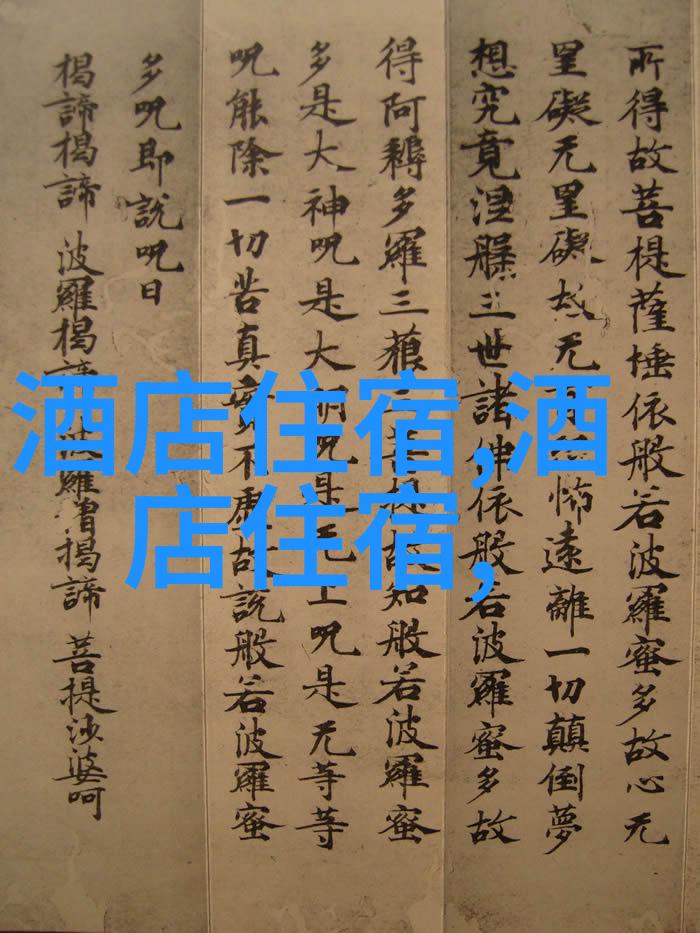 所得故菩提薩埵依般若波羅蜜多故心无
罣礙无罣礙故无有恐怖遠離一切顛倒夢
想究竟涅槃三世諸佛依般若波羅蜜多故
得阿耨多羅三藐三菩提故知般若波羅蜜
多是大神呪是大明呪是无上呪是无等等
呪能除一切苦真實不虛故說般若波羅蜜
多呪即說呪曰
揭諦揭諦 波羅揭諦 波羅僧揭諦 菩提沙婆呵
酒店住宿,酒
店住宿,